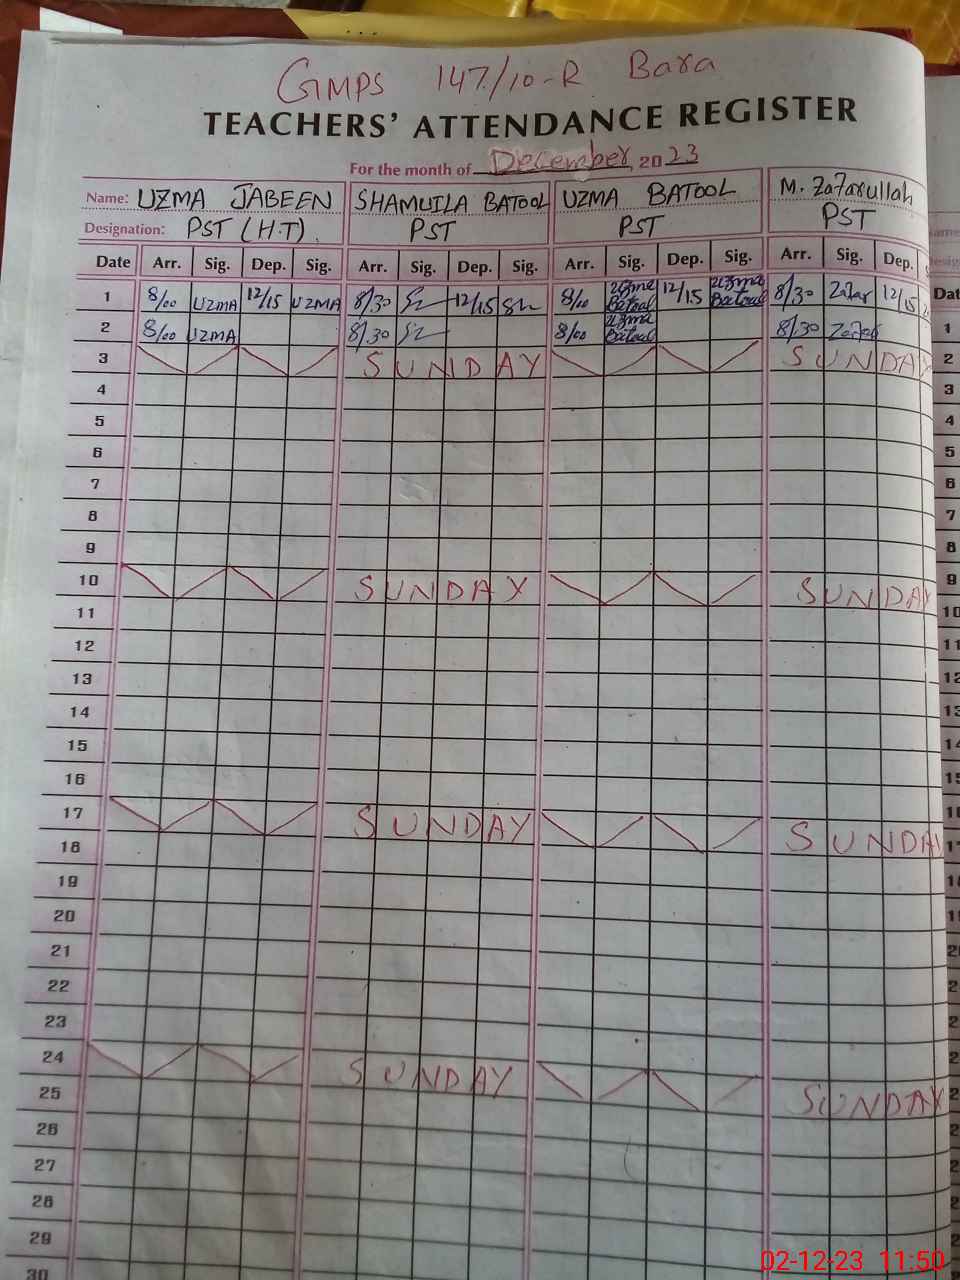 GMPS 147/10-R Bara
TEACHERS' ATTENDANCE REGISTER
For the month of December, 2023
Name: UZMA JABEEN SHAMUILA BATOOL UZMA BATOOL M. Zafarullah
Designation: PST (H.T) PST PST PST
Date Arr. Sig. Dep. Sig. Arr. Sig. Dep. Sig. Arr. Sig. Dep. Sig. Arr. Sig. Dep.
1 8/00 UZMA 12/15 UZMA 8/30 12/15 8/00 Uzma Batool 12/15 Uzma Batool 8/30 Zafar 12/15 1
2 8/00 UZMA 8/30 8/00 Uzma Batool 8/30 Zafar
3 SUNDAY SUNDAY 2
4 3
5 4
6 5
7 6
8 7
9 8
10 SUNDAY SUNDAY 9
11 10
12 11
13 12
14 13
15 14
16 15
17 SUNDAY SUNDAY
18
19
20
21
22
23
24 SUNDAY
25 SUNDAY
26
27
28
29
30
02-12-23 11:50